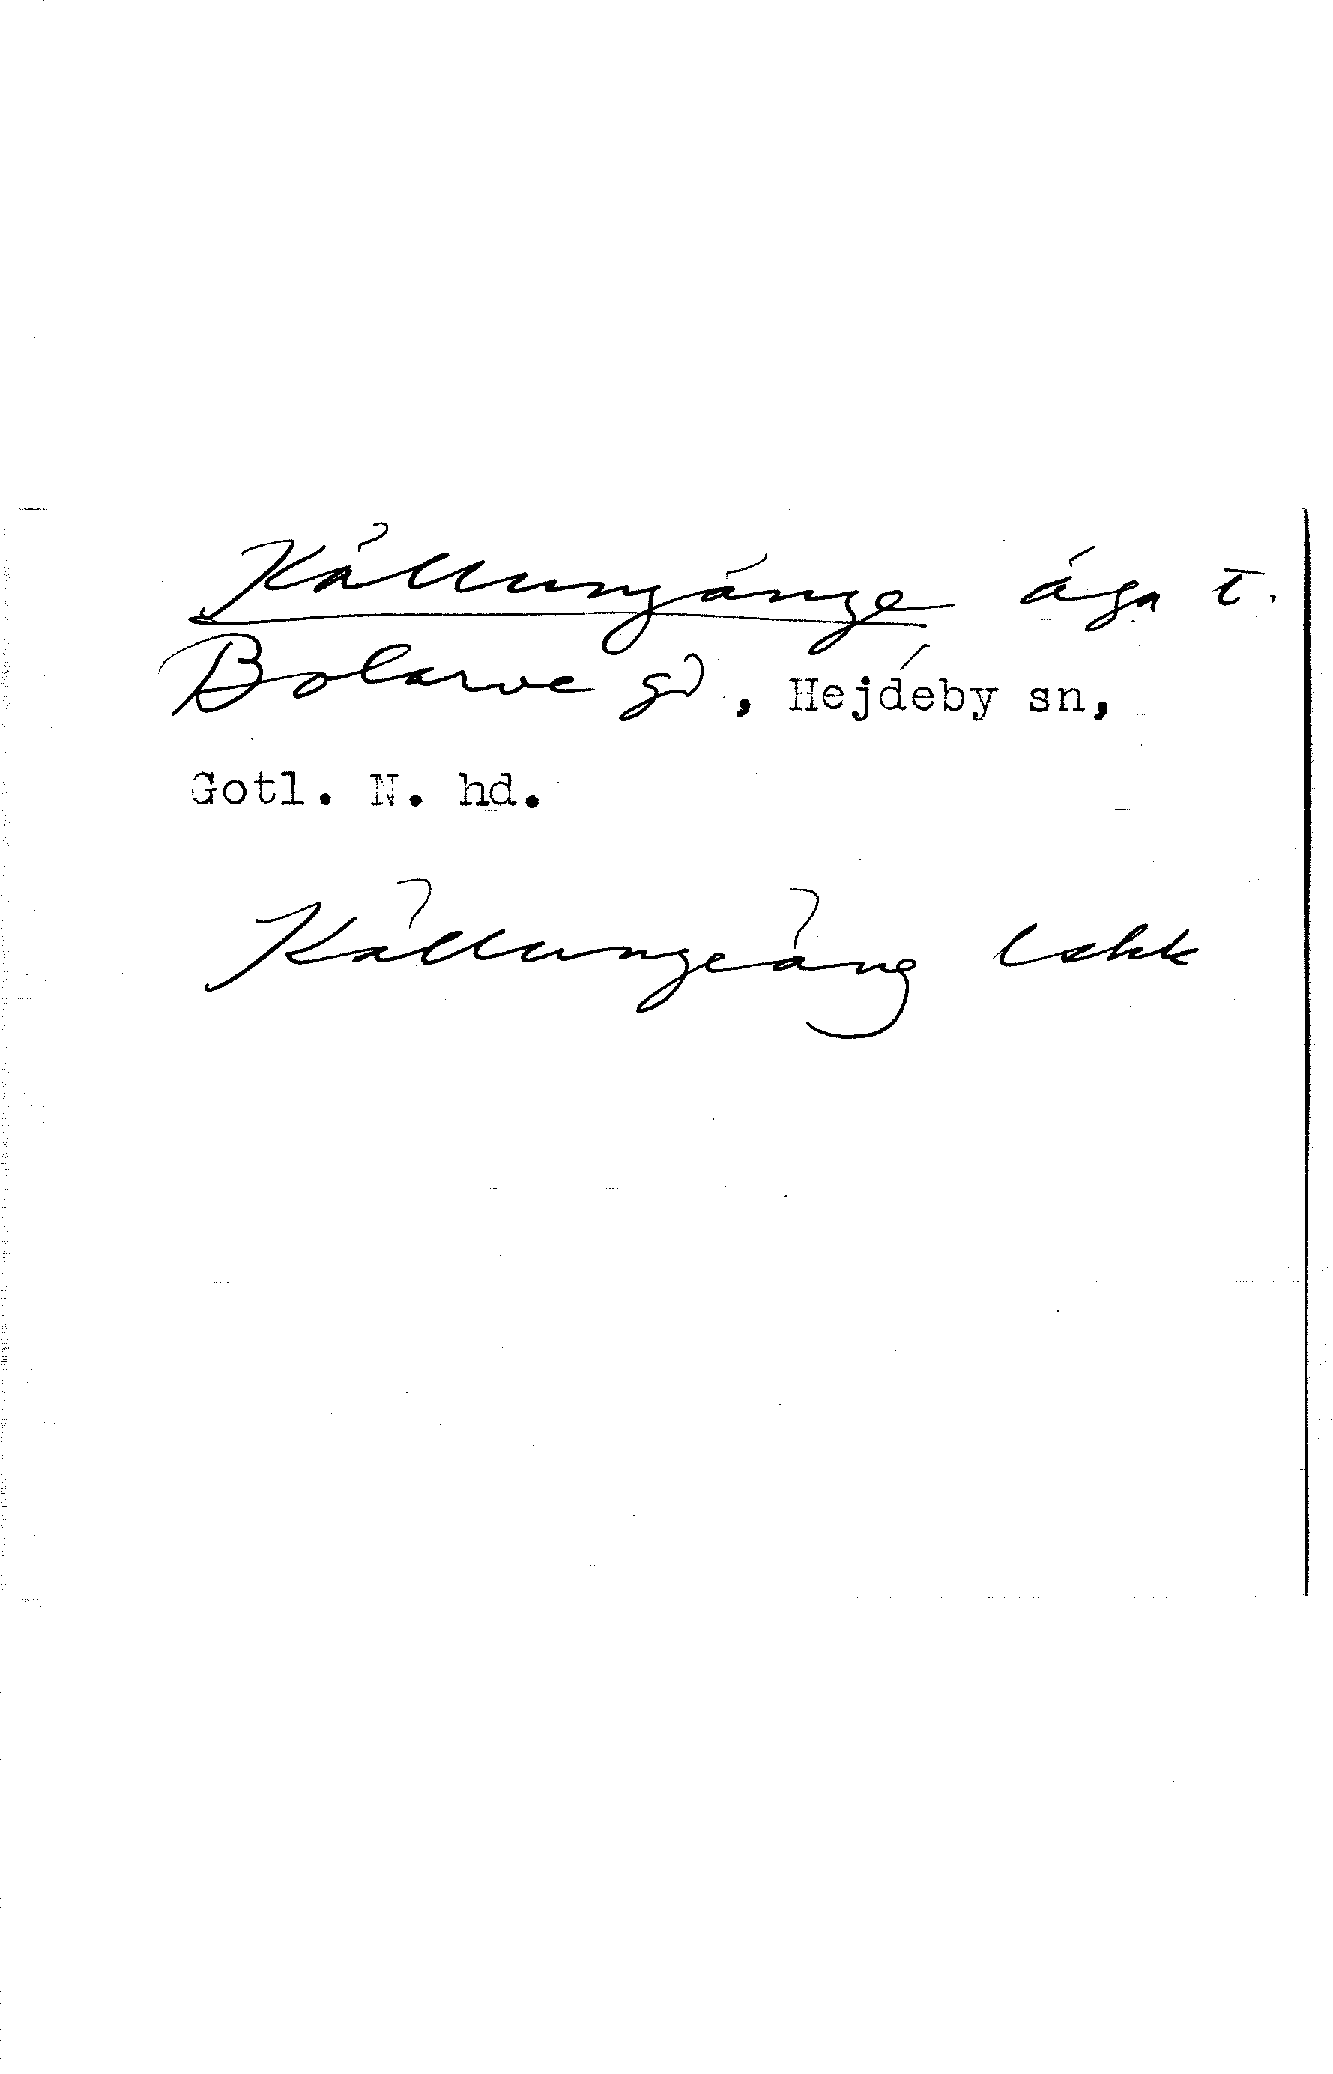 Källungänge äga t.
Bolarve gd, Hejdeby sn,
Gotl. N. hd.
Källungeäng